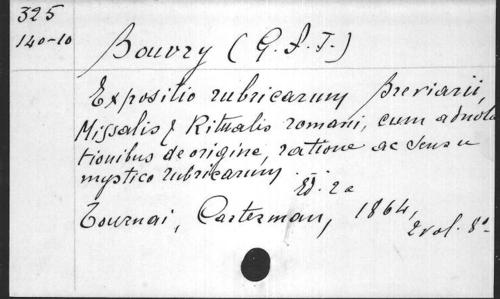 325
140-10
Bouvry (G. J. T.)
Expositio rubricarum Breviarii,
Missalis & Ritualis romani, cum adnota
tionibus de origine, ratione ac sensu
mystico rubricarum. Ed. 2a
Tournai, Casterman, 1864,
2 vol. 8º